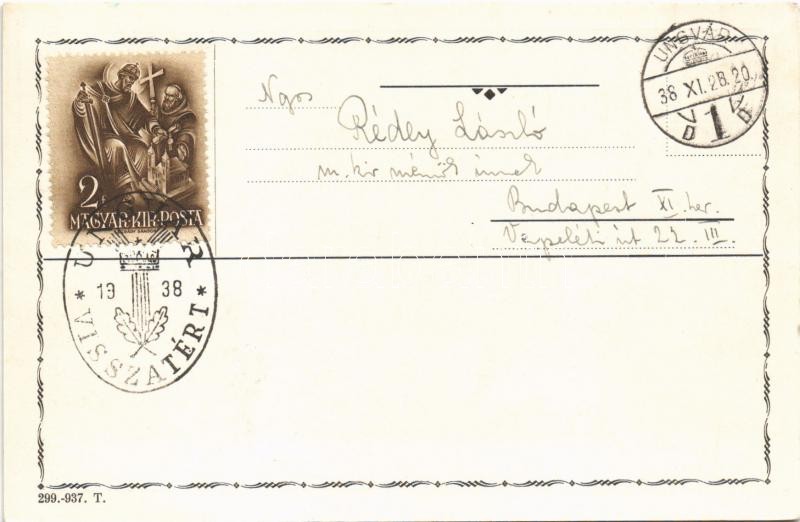 UNGVÁR
38 XI. 28. 20
1
2f
MAGYAR·KIR·POSTA
UNGVÁR
* 19 38 *
VISSZATÉRT
Ngos
Rédey László
m. kir
Budapest XI. ker.
út 22. III.
299.-937. T.